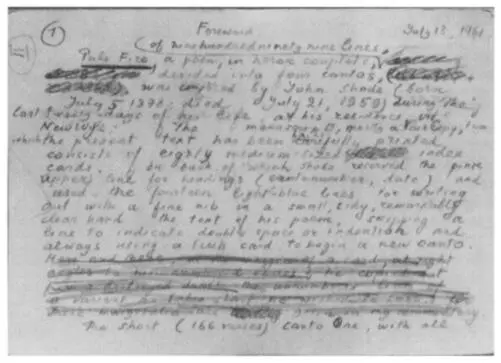 ① Foreword July 13, 1961
(of nine hundred ninety nine lines,
Pale Fire, a poem, in heroic couplets,
divided into four cantos,
was composed by John Shade (born
July 5, 1898; died July 21, 1959) during the
last twenty days of his life, at his residence in
New Wye. The manuscript, mostly a Fair Copy, from
which the present text has been carefully printed
consists of eighty medium-sized index
cards, on each of which Shade reserved the pink
upper line for headings (canto number, date) and
used the fourteen light blue lines for writing
out with a fine nib in a small, tidy, remarkably
clear hand the text of his poem, skipping a
line to indicate double space or indentation and
always using a fresh card to begin a new canto.
Here and there, in the margin of a card, at right
in my commentary.
The short (166 verses) canto One, with all